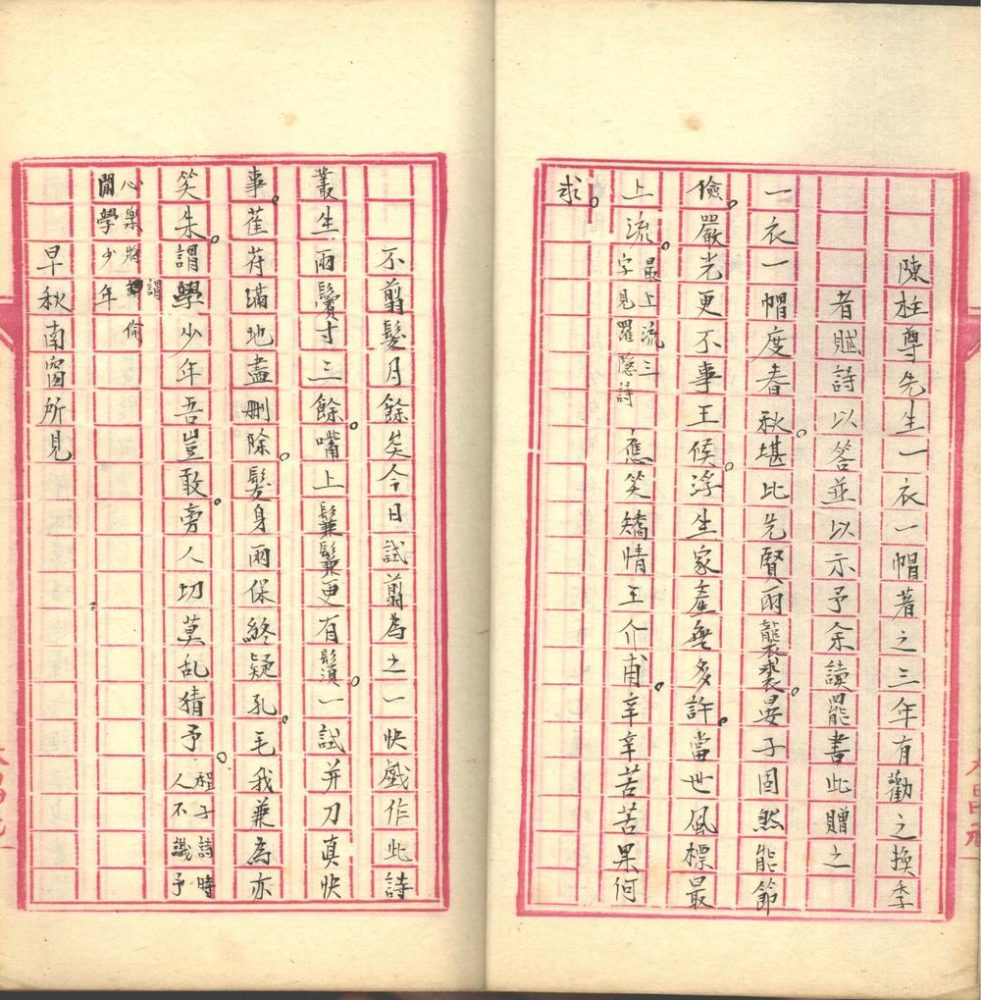 陳柱尊先生一衣一帽著之三年有勸之換季
者賦詩以答並以示予余讀罷書此贈之
一衣一帽度春秋。堪比先賢兩襲裘。晏子固然能節
儉。嚴光更不事王侯。浮生家產無多許。當世風標最
上流。最上流三字見羅隱詩 應笑矯情王介甫。辛辛苦苦果何
求。
不剪髮月餘矣今日試剪為之一快戲作此詩
叢生兩鬢寸三餘。嘴上鬑鬑更有鬚。一試并刀真快
事。萑苻滿地盡刪除。髮身兩保終疑孔。毛我兼為亦
笑朱。謂學少年吾豈敢。旁人切莫乱猜予。程子詩時人不識予
心樂將謂偷閒學少年
早秋南窗所見